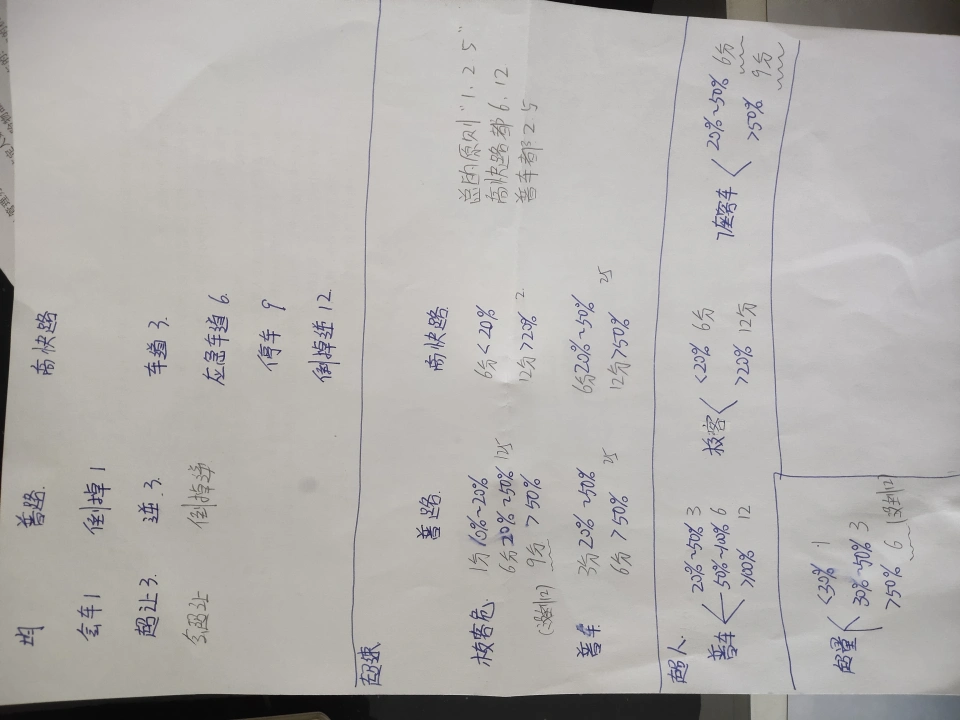 均 普路 高快路
会车1 倒掉1
超让3. 逆.3. 车道3.
会超让 倒掉逆 应急车道6.
停车9
倒掉逆12.
超速
普路 高快路
校客危 1分10%~20% 6分<20% 总的原则"1.2 5"
6分20%~50% 125 12分>20% 2 高快路都6.12
(没到12) 9分 >50% 普车都2.5
普车 3分20%~50% 6分20%~50%
6分 >50% 25 12分>50% 25
超人.
普车 20%~50% 3 校客 <20% 6分 7座客车 20%~50% 6分
50%~100% 6 >20% 12分 >50% 9分
>100% 12
超量 <30% 1
30%~50% 3
>50% 6 (没到12)